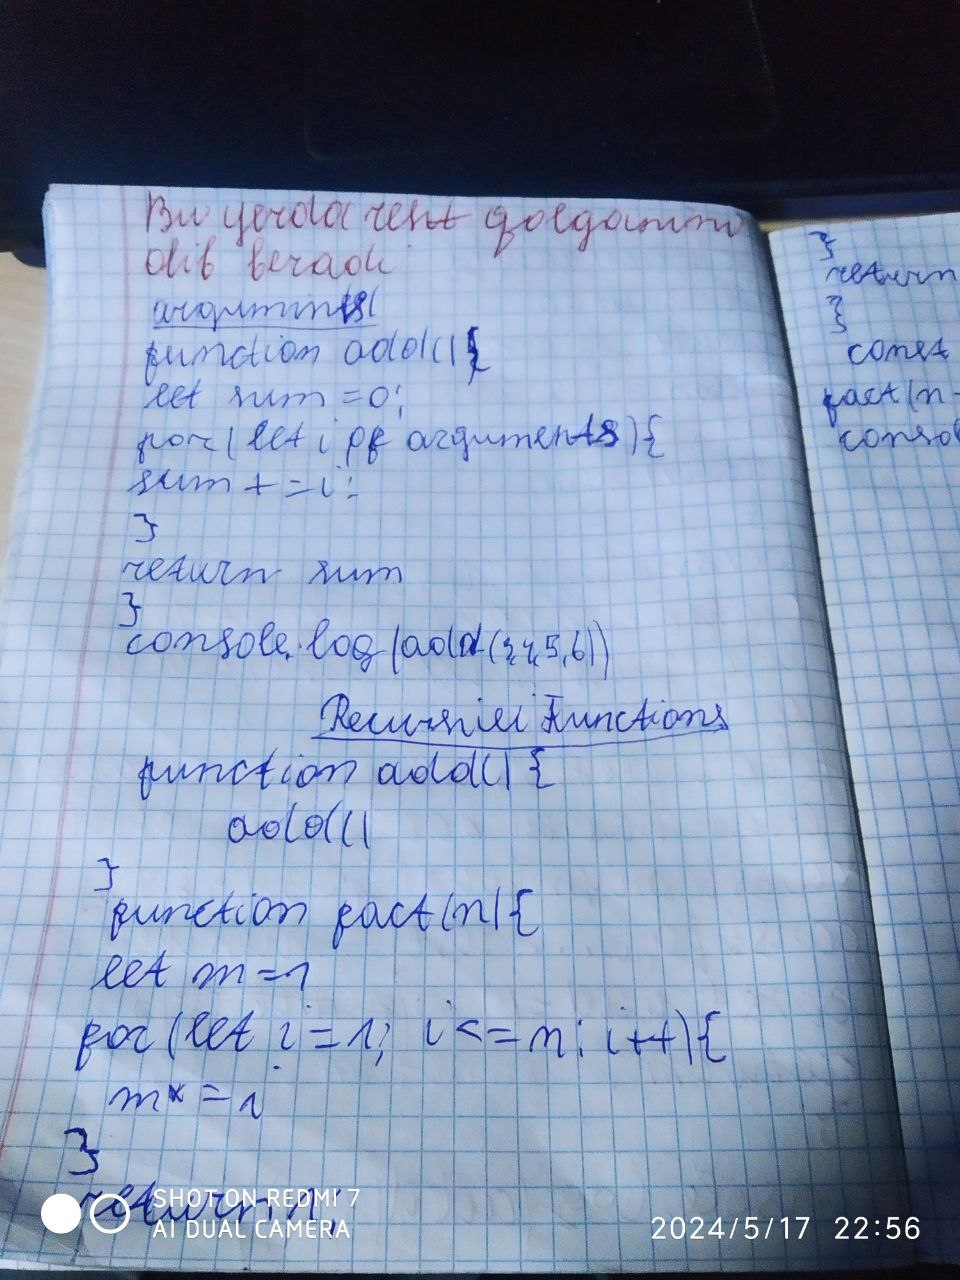 Bu yerda rest qolganini
olib beradi
arguments
function add(){
let sum =0;
for(let i of arguments){
sum +=i;
}
return sum
}
console.log(add(3,4,5,6))
Functions
function add(){
add()
}
function fact(n){
let m=1
for(let i=1; i<=n; i++){
m*=i
}
return
}
return
}
const
fact(n-
consol
SHOT ON REDMI 7
AI DUAL CAMERA
2024/5/17 22:56